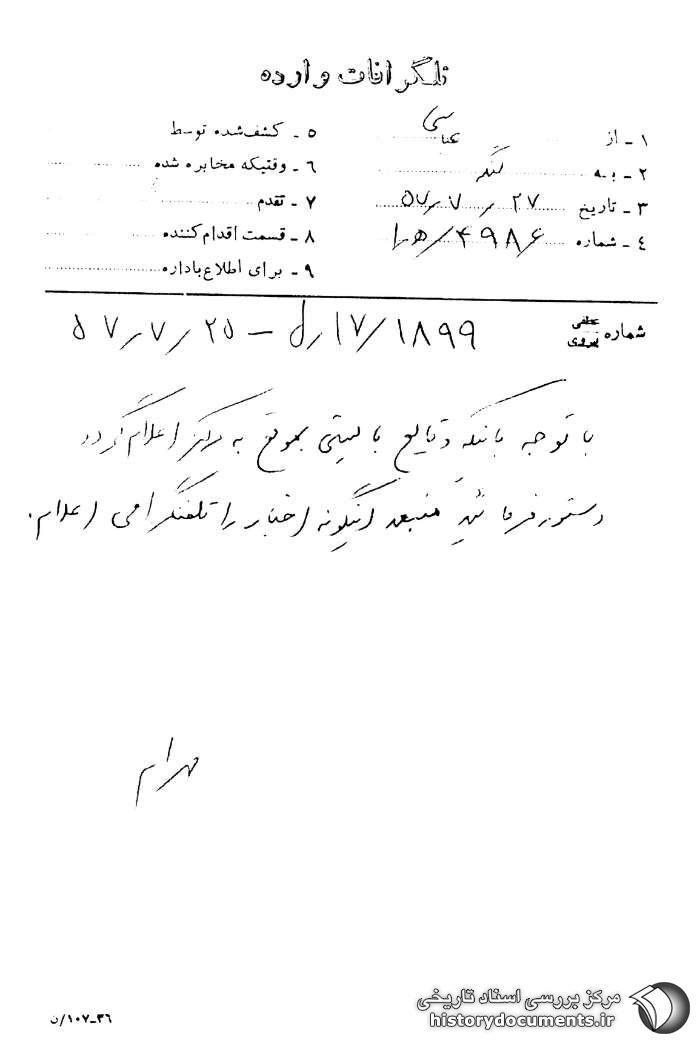 تلگرافات وارده
۱ ـ از عباسی
۲ ـ به لنگه
۳ ـ تاریخ ۲۷ ر ۷ ر ۵۷
۴ ـ شماره ۴۹۸۶/ه‍ ۱
۵ ـ کشف شده توسط
۶ ـ وقتیکه مخابره شده
۷ ـ تقدم
۸ ـ قسمت اقدام کننده
۹ ـ برای اطلاع باداره
شماره عطفی پیروی ۱۷/۱۸۹۹ ر د ـ ۲۵ ر ۷ ر ۵۷
با توجه باینکه وقایع بایستی بموقع به مرکز اعلام گردد
دستور فرمائید منبعد اینگونه اخبار را تلفنگرامی اعلام.
مرکز بررسی اسناد تاریخی
historydocuments.ir
۳۶ـ۱۰۷/ن